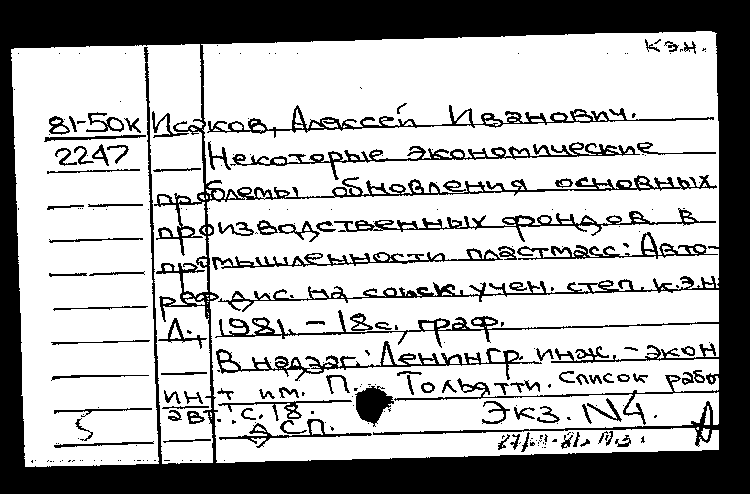 к.э.н.
81-50к Исаков, Алексей Иванович.
2247 Некоторые экономические
проблемы обновления основных
производственных фондов в
промышленности пластмасс: Авто-
реф. дис. на соиск. учен. степ. к.э.н
Л., 1981. - 18 с., граф.
В надзаг.: Ленингр. инж. - экон
ин-т им. П. Тольятти. Список рабо
авт.: с. 18. Экз. N4.
5 СП. А